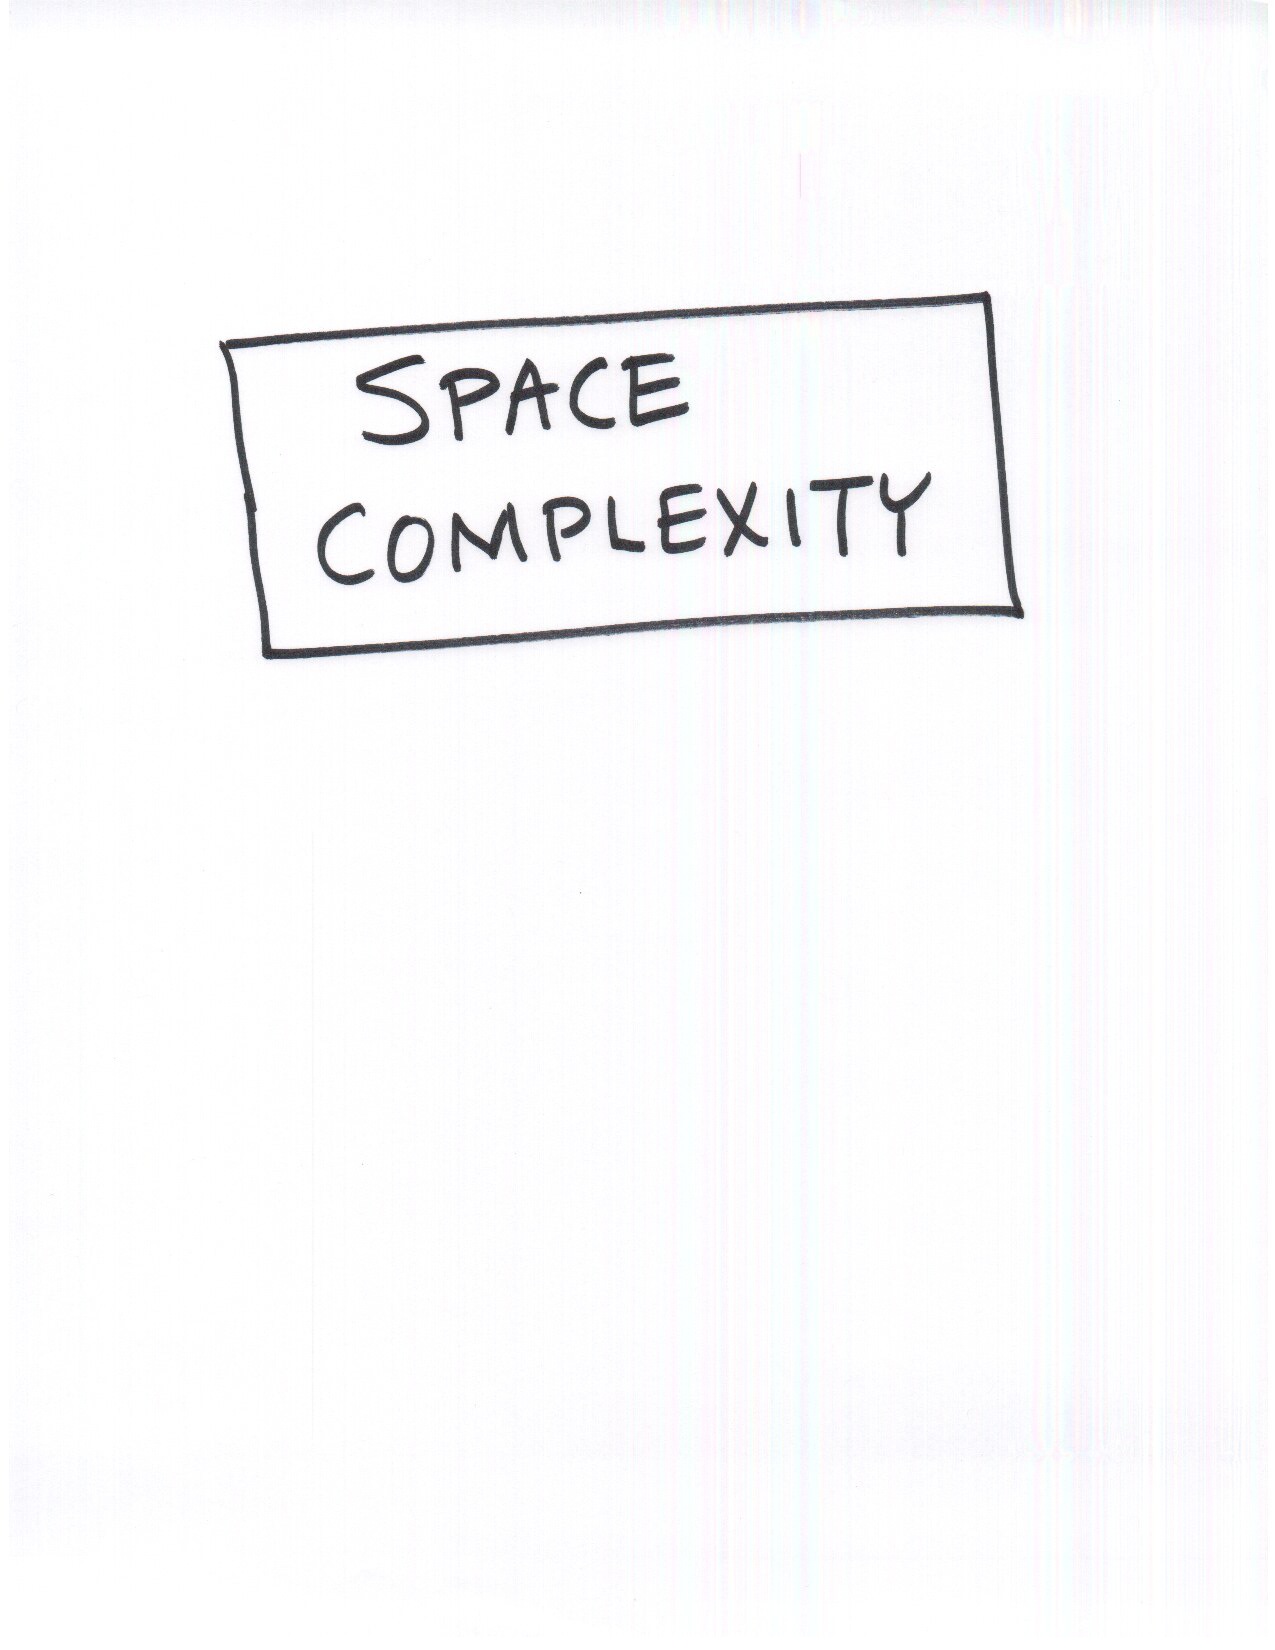 SPACE
COMPLEXITY